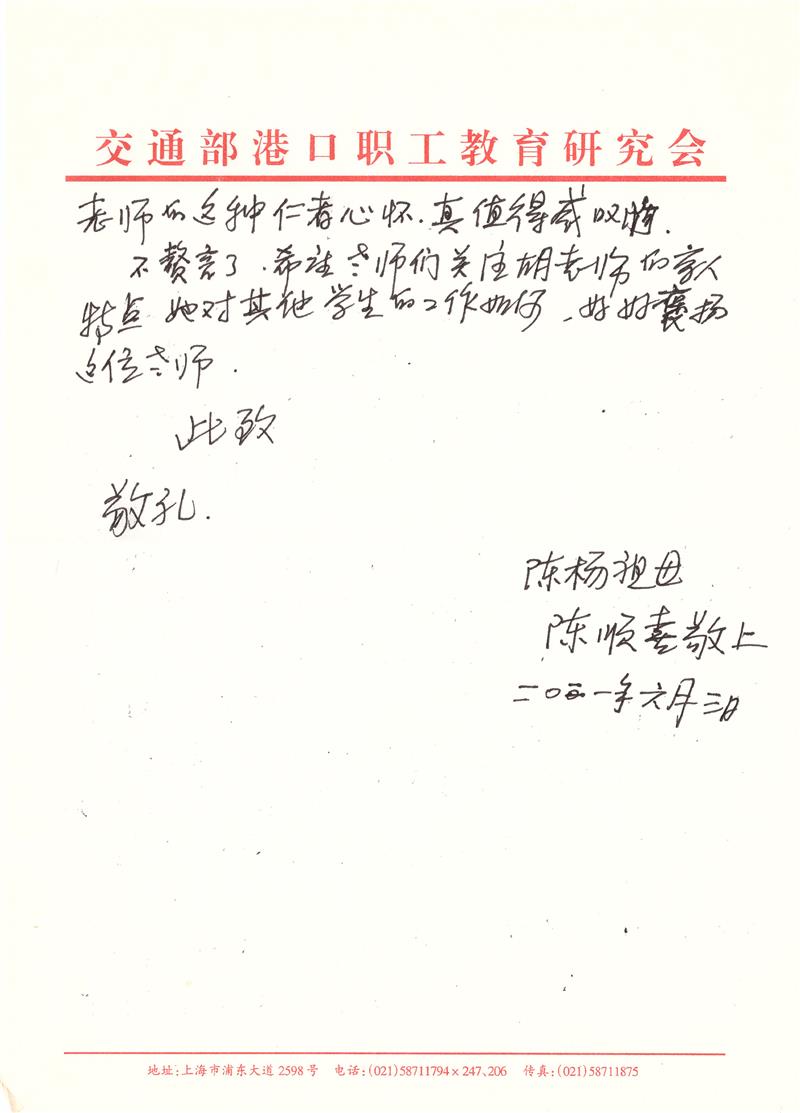 交通部港口职工教育研究会
老师的这种仁者心怀.真值得感叹.
不赘言了.希望老师们关注胡老师的育人
特点 她对其他学生的工作如何,好好褒扬
这位老师.
此致
敬礼.
陈杨祖母
陈顺喜敬上
二〇一年六月三日
地址:上海市浦东大道2598号 电话:(021)58711794×247、206 传真:(021)58711875